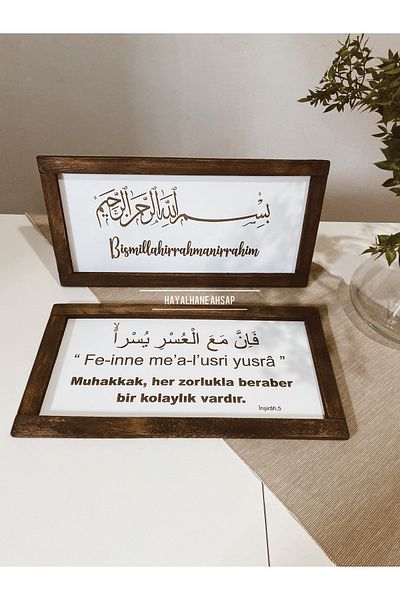 بِسْمِ اللّٰهِ الرَّحْمٰنِ الرَّحِيْمِ
Bismillahirrahmanirrahim
HAYALHANE AHŞAP
فَاِنَّ مَعَ الْعُسْرِ يُسْراًۙ
“ Fe-inne me’a-l’usri yusrâ ”
Muhakkak, her zorlukla beraber
bir kolaylık vardır.
İnşirâh,5